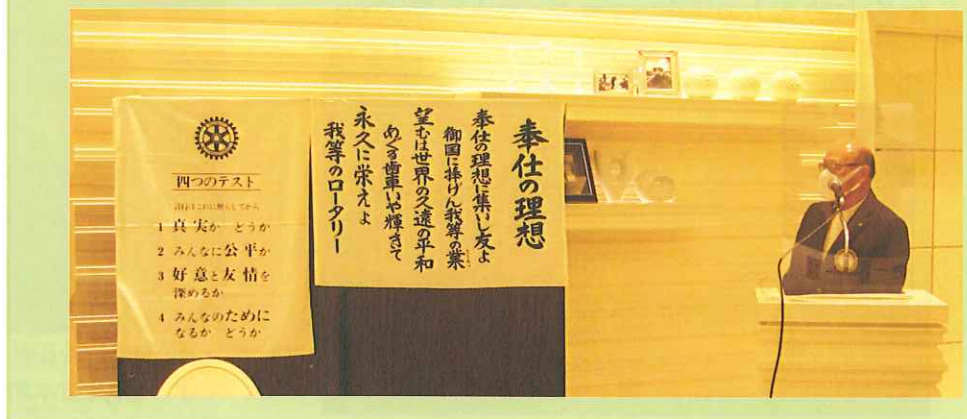 四つのテスト
言行はこれに照らしてから
1 真実か どうか
2 みんなに公平か
3 好意と友情を
深めるか
4 みんなのために
なるか どうか
奉仕の理想
奉仕の理想に集いし友よ
御国に捧げん我等の業
望むは世界の久遠の平和
めぐる歯車いや輝きて
永久に栄えよ
我等のロータリー